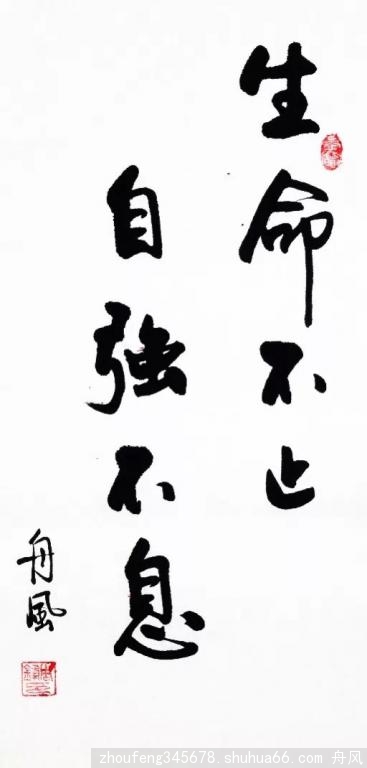 生命不止
自強不息
舟風
zhoufeng345678.shuhua66.com 舟风